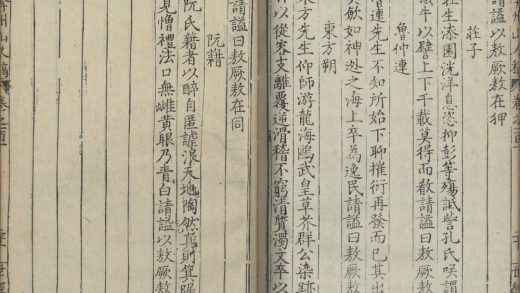 請謚以敖厥敖在狎
莊子
莊生漆園洸洋自恣抑彭等殤詆訾孔氏咲謂
犧牛以譬上下千載莫得而斆請謚曰敖厥敖
魯仲連
魯連先生不知所始下聊摧衍再發而已其出
歘如神逊之海上卒為逸民請謚曰敖厥敖
東方朔
東方先生仰師游龍海鷗武皇草芥群公染跡
仕以從容支離覆逆滑稽不窮清質濁文卒以
請謚曰敖厥敖在同
阮籍
阮氏籍者以醉自匿謔浪天地陶然真則箕踞
見憎禮法口無雌黃眼乃青白請謚以敖厥敖
州山人稿 卷之百 世經